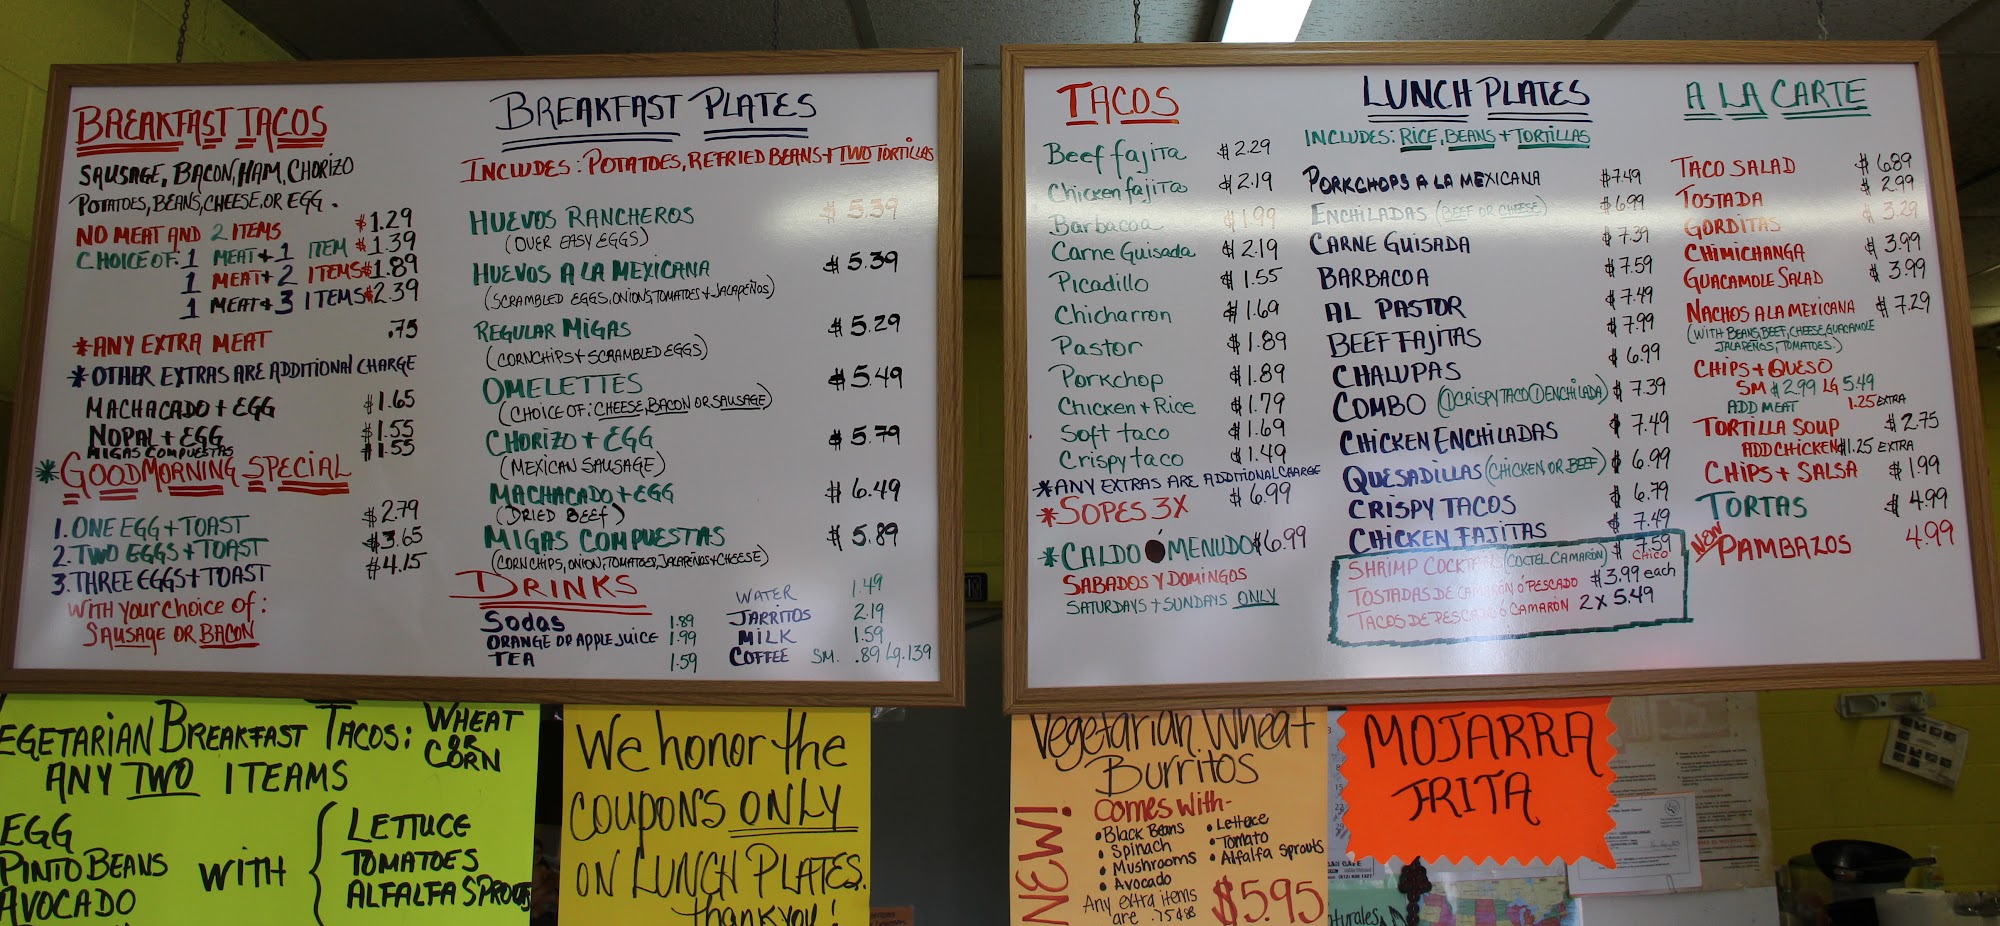 BREAKFAST TACOS
SAUSAGE, BACON, HAM, CHORIZO
POTATOES, BEANS, CHEESE, OR EGG.
NO MEAT AND 2 ITEMS $1.29
CHOICE OF: 1 MEAT + 1 ITEM $1.39
1 MEAT + 2 ITEMS $1.89
1 MEAT + 3 ITEMS $2.39
*ANY EXTRA MEAT .75
*OTHER EXTRAS ARE ADDITIONAL CHARGE
MACHACADO + EGG $1.65
NOPAL + EGG $1.55
MIGAS COMPUESTAS $1.55
*GOOD MORNING SPECIAL
1. ONE EGG + TOAST $2.79
2. TWO EGGS + TOAST $3.65
3. THREE EGGS + TOAST $4.15
WITH YOUR CHOICE OF:
SAUSAGE OR BACON
BREAKFAST PLATES
INCLUDES: POTATOES, REFRIED BEANS + TWO TORTILLAS
HUEVOS RANCHEROS $5.39
(OVER EASY EGGS)
HUEVOS A LA MEXICANA $5.39
(SCRAMBLED EGGS, ONIONS, TOMATOES + JALAPEÑOS)
REGULAR MIGAS $5.29
(CORN CHIPS + SCRAMBLED EGGS)
OMELETTES $5.49
(CHOICE OF: CHEESE, BACON OR SAUSAGE)
CHORIZO + EGG $5.79
(MEXICAN SAUSAGE)
MACHACADO + EGG $6.49
(DRIED BEEF)
MIGAS COMPUESTAS $5.89
(CORN CHIPS, ONION, TOMATOES, JALAPEÑOS + CHEESE)
DRINKS
SODAS 1.89
ORANGE OR APPLE JUICE 1.99
TEA 1.59
WATER 1.49
JARRITOS 2.19
MILK 1.59
COFFEE SM. .89 Lg. 1.39
TACOS
Beef fajita $2.29
Chicken fajita $2.19
Barbacoa $1.99
Carne Guisada $2.19
Picadillo $1.55
Chicharron $1.69
Pastor $1.89
Porkchop $1.89
Chicken + Rice $1.79
Soft taco $1.69
Crispy taco $1.49
*ANY EXTRAS ARE ADDITIONAL CHARGE
*SOPES 3X $6.99
*CALDO Ó MENUDO $6.99
SABADOS Y DOMINGOS
SATURDAYS + SUNDAYS ONLY
LUNCH PLATES
INCLUDES: RICE, BEANS + TORTILLAS
PORKCHOPS A LA MEXICANA $7.49
ENCHILADAS (BEEF OR CHEESE) $6.99
CARNE GUISADA $7.39
BARBACOA $7.59
AL PASTOR $7.49
BEEF FAJITAS $7.99
CHALUPAS $6.99
COMBO (1 CRISPY TACO 1 ENCHILADA) $7.39
CHICKEN ENCHILADAS $7.49
QUESADILLAS (CHICKEN OR BEEF) $6.99
CRISPY TACOS $6.79
CHICKEN FAJITAS $7.49
SHRIMP COCKTAILS (COCTEL CAMARÓN) $7.59 CHICO
TOSTADAS DE CAMARÓN Ó PESCADO $3.99 each
TACOS DE PESCADO Ó CAMARÓN 2 X 5.49
A LA CARTE
TACO SALAD $6.89
TOSTADA $2.99
GORDITAS $3.29
CHIMICHANGA $3.99
GUACAMOLE SALAD $3.99
NACHOS A LA MEXICANA $7.29
(WITH BEANS, BEEF, CHEESE, GUACAMOLE
JALAPEÑOS, TOMATOES.)
CHIPS + QUESO
SM $2.99 LG 5.49
ADD MEAT 1.25 EXTRA
TORTILLA SOUP $2.75
ADD CHICKEN $1.25 EXTRA
CHIPS + SALSA $1.99
TORTAS $4.99
NEW PAMBAZOS 4.99
EGETARIAN BREAKFAST TACOS: WHEAT
OR
CORN
ANY TWO ITEAMS
EGG
PINTO BEANS
AVOCADO
WITH
LETTUCE
TOMATOES
ALFALFA SPROUTS
We honor the
COUPONS ONLY
ON LUNCH PLATES.
thank you!
Vegetarian Wheat
Burritos
NEW!
Comes With-
• Black Beans
• Spinach
• Mushrooms
• Avocado
• Lettece
• Tomato
• Alfalfa Sprouts
Any extra items
are .75¢
$5.95
MOJARRA
FRITA